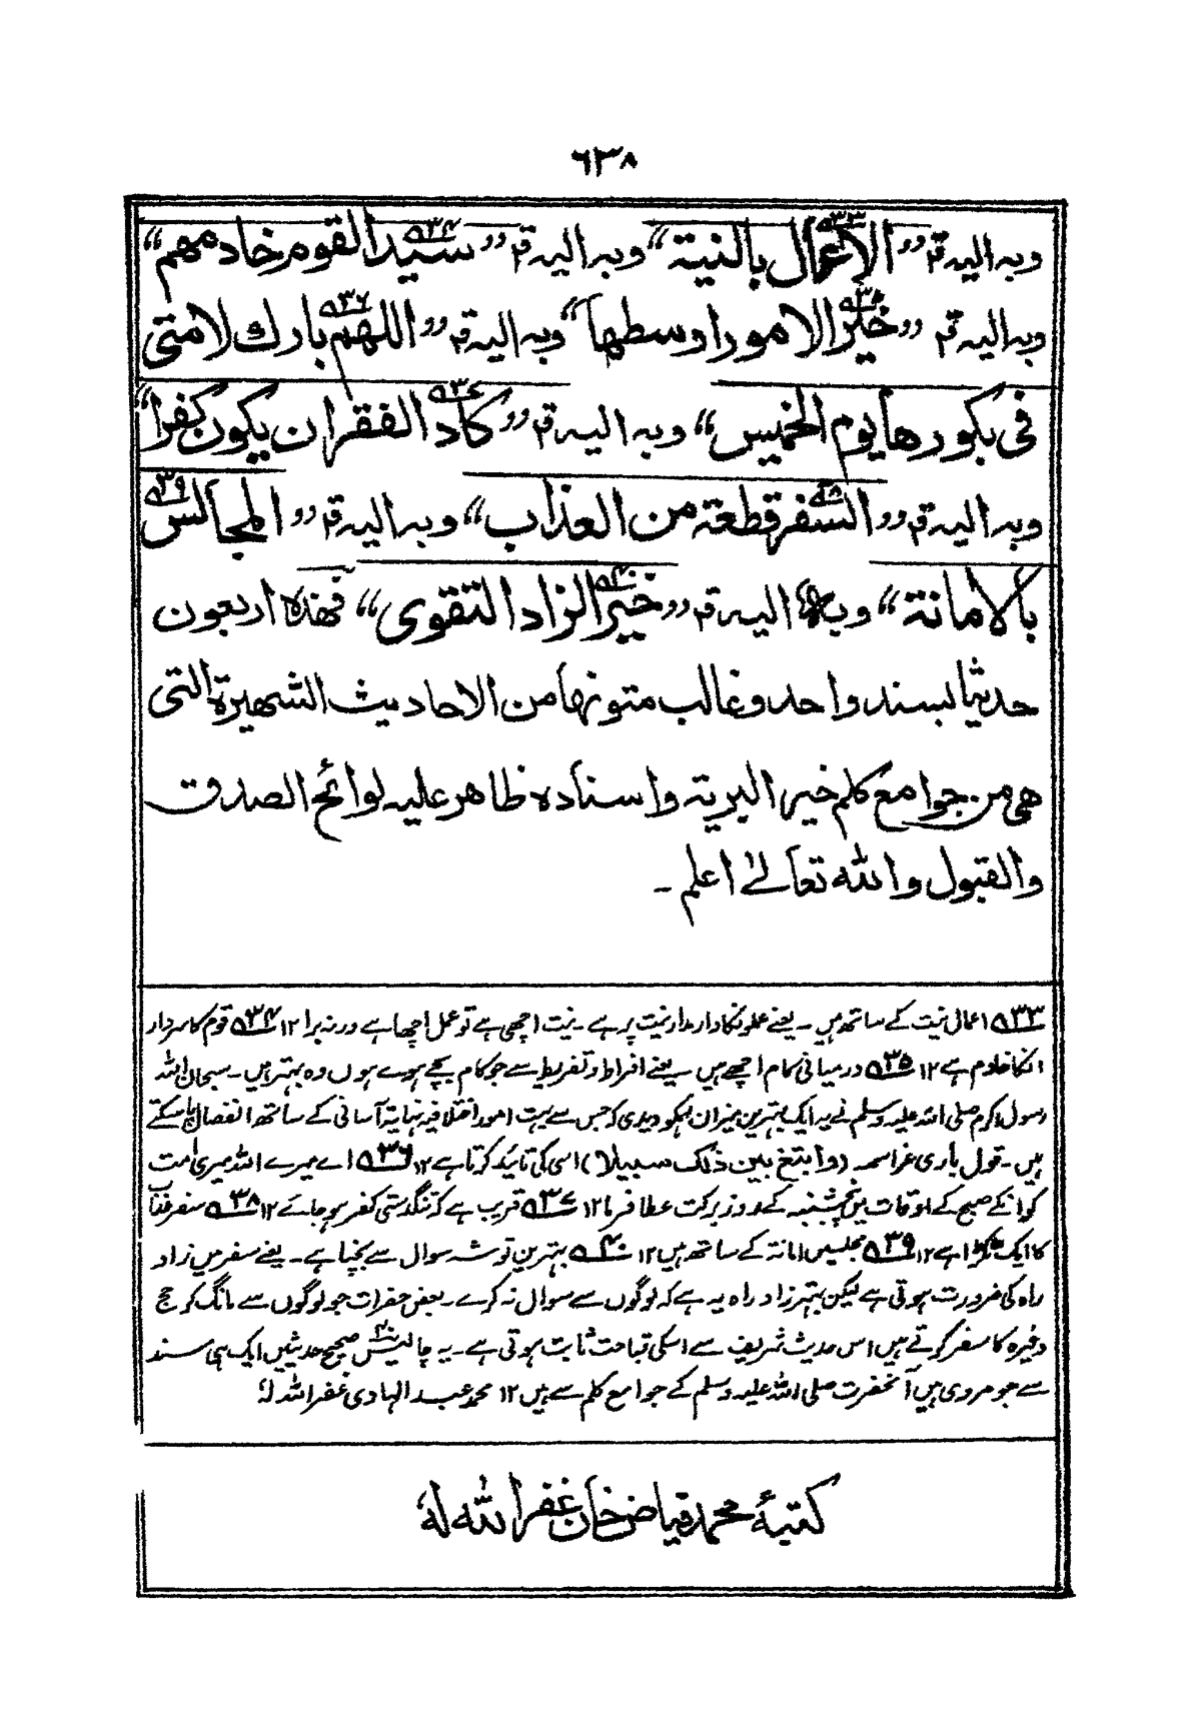 ٦٣٨
وبہ الیہ قم ”الاعمال ۵۳۳ بالنیۃ“ وبہ الیہ قم ”سید ۵۳۴ القوم خادمھم“
وبہ الیہ قم ”خیر ۵۳۵ الامور اوسطھا“ وبہ الیہ قم ”اللھم ۵۳۶ بارك لامتی
فی بکورھا یوم الخمیس“ وبہ الیہ قم ”کاد ۵۳۷ الفقر ان یکون کفرا“
وبہ الیہ قم ”السفر ۵۳۸ قطعۃ من العذاب“ وبہ الیہ قم ”المجالس ۵۳۹
بالامانۃ“ وبہ الیہ قم ”خیر ۵۴۰ الزاد التقوی“ فھذہ اربعون
حدیثا بسند واحد وغالب متونھا من الاحادیث الشھیرۃ التی
ھی من جوامع کلم خیر البریۃ واسنادہ ظاھر علیہ لوائح الصدق
والقبول واللہ تعالیٰ اعلم ۔
۵۳۳ اعمال نیت کے ساتھ ہیں ۔ یعنے عملونکا دارمدار نیت پر ہے ۔ نیت اچھی ہے تو عمل اچھا ہے ورنہ برا ۱۲ ۵۳۴ قوم کا سردار
انکا خادم ہے ۱۲ ۵۳۵ درمیانی کام اچھے ہیں ۔ یعنے افراط وتفریط سے جو کام بچے ہوے ہوں وہ بہتر ہیں ۔ سبحان اللہ
رسول اکرم صلی اللہ علیہ وسلم نے یہ ایک بہترین میزان ہمکو دیدی کہ جس سے بہت امور اختلافیہ نہایۃ آسانی کے ساتھ انفصال پا سکتے
ہیں ۔ قول باری عز اسمہ (وابتغ بین ذلک سبیلا) اسی کی تائید کرتا ہے ۱۲ ۵۳۶ اے میرے اللہ میری امت
کو انکے صبح کے اوقات میں پنجشنبہ کے روز برکت عطا فرما ۱۲ ۵۳۷ قریب ہے کہ تنگدستی کفر ہو جائے ۱۲ ۵۳۸ سفر عذاب
کا ایک ٹکڑا ہے ۱۲ ۵۳۹ مجلسیں امانۃ کے ساتھ ہیں ۱۲ ۵۴۰ بہترین توشہ سوال سے بچنا ہے ۔ یعنے سفر میں زاد
راہ کی ضرورت ہوتی ہے لیکن بہتر زاد راہ یہ ہے کہ لوگوں سے سوال نہ کرے ۔ بعض حضرات جو لوگوں سے مانگ کر حج
وغیرہ کا سفر کرتے ہیں اس حدیث شریف سے اسکی قباحت ثابت ہوتی ہے ۔ یہ چالیس ۴۰ صحیح حدیثیں ایک ہی سند
سے جو مروی ہیں آنحضرت صلی اللہ علیہ وسلم کے جوامع کلم سے ہیں ۱۲ محمد عبد الہادی غفر اللہ لہٗ
کتبہٗ محمد فیاض خان غفر اللہ لہٗ